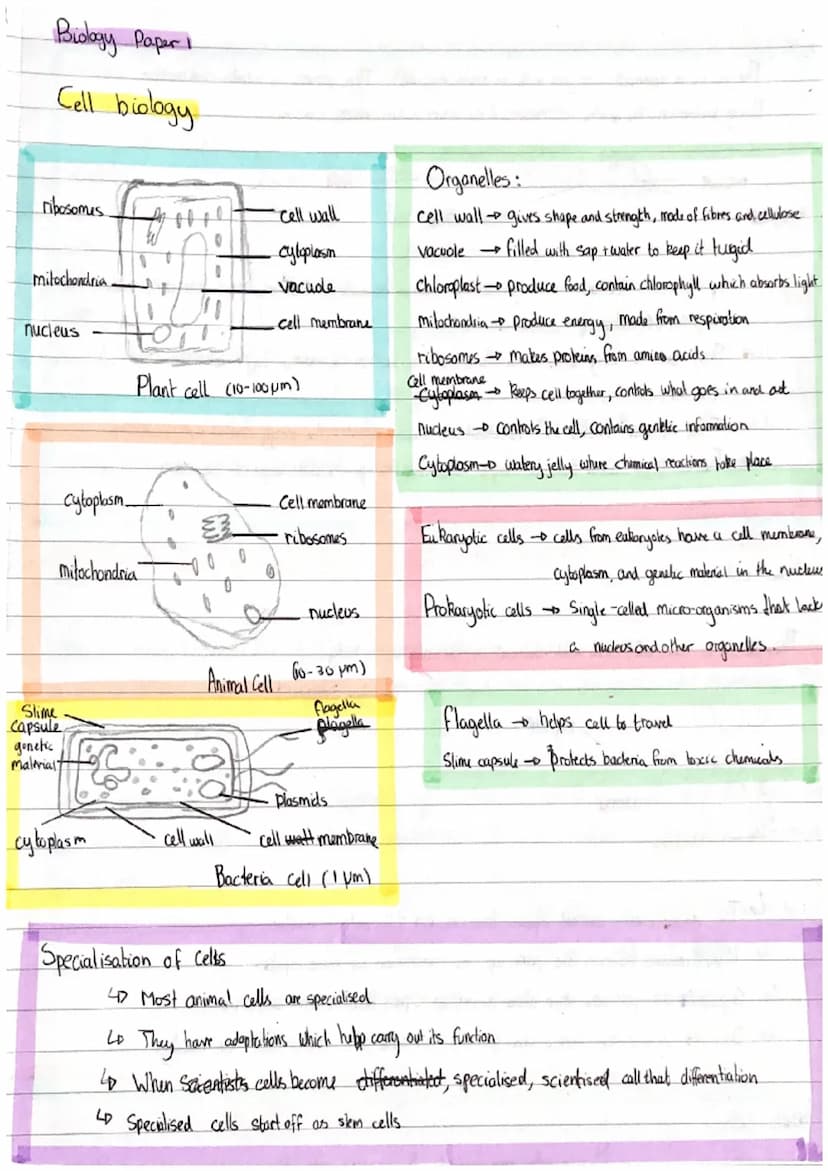 Biology Paper 1
Cell biology
ribosomes
mitochondria
nucleus
cell wall
cytoplasm
vacuole
cell membrane
Plant cell (10-100µm)
Organelles:
cell wall → gives shape and strength, made of fibres and cellulose
vacuole → filled with sap + water to keep it turgid
Chloroplast → produce food, contain chlorophyll which absorbs light
mitochondria → produce energy, made from respiration
ribosomes → makes proteins from amino acids
Cell membrane
Cytoplasm → keeps cell together, controls what goes in and out
nucleus → controls the cell, contains genetic information
Cytoplasm → watery jelly where chemical reactions take place
cytoplasm
mitochondria
Cell membrane
ribosomes
nucleus
Animal Cell (10-30 µm)
Eukaryotic cells → cells from eukaryotes have a cell membrane,
cytoplasm, and genetic material in the nucleus
Prokaryotic cells → Single-celled micro-organisms that lack
a nucleus and other organelles.
Slime
capsule
genetic
material
cytoplasm
cell wall
cell wall membrane
plasmids
flagella
Bacteria cell (1 µm)
flagella → helps cell to travel
Slime capsule → Protects bacteria from toxic chemicals
Specialisation of cells
↳ Most animal cells are specialised
↳ They have adaptations which help carry out its function
↳ When Scientists cells become differentiated, specialised, scientised call that differentiation
↳ Specialised cells start off as stem cells